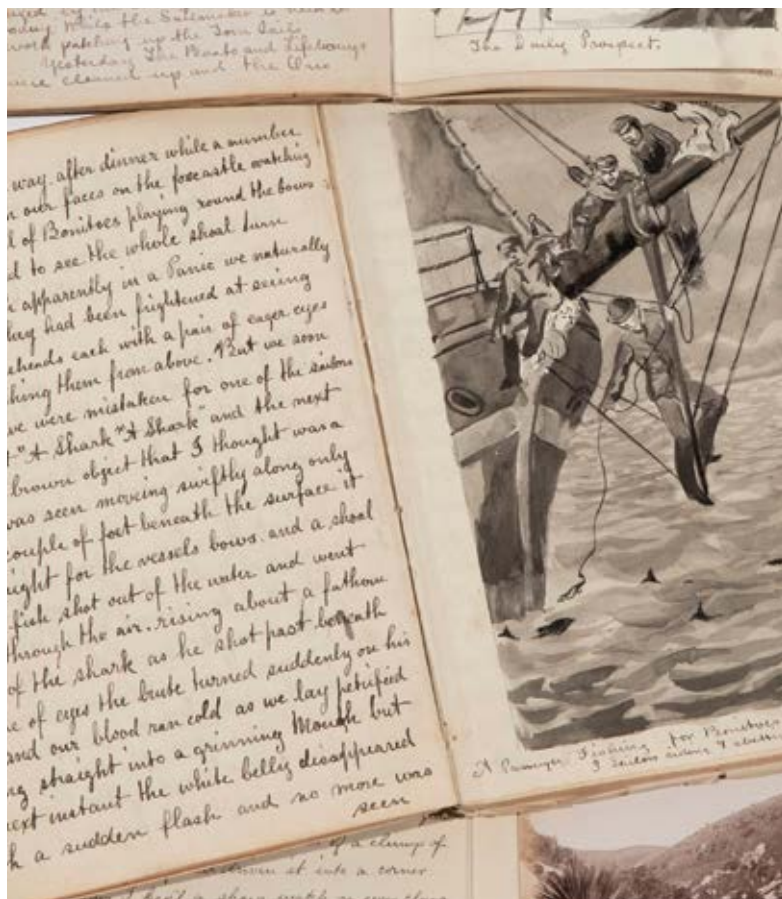 while the Sailmaker is
work patching up the Torn Sails
Yesterday The Boats and Lifebuoys
were cleaned up and the
The Daily Prospect.
way. after dinner while a number
n our faces on the forecastle watching
l of Bonitoes playing round the bows
d to see the whole shoal turn
apparently in a Panic we naturally
they had been frightened at seeing
eheads each with a pair of eager eyes
hing them from above. But we soon
we were mistaken for one of the sailors
"A Shark "A Shark" and the next
brown object that I thought was a
was seen moving swiftly along only
couple of feet beneath the surface it
ight for the vessels bows. and a shoal
-fish shot out of the water and went
through the air. rising about a fathom
of the shark as he shot past beneath
e of eyes the brute turned suddenly on his
and our blood ran cold as we lay petrified
ng straight into a grinning Mough but
next instant the white belly disappeared
h a sudden flash and no more was
seen
A Fishing for Bonitoes
3 Sailors aiding &
of a clump of
it into a corner
a sharp watch